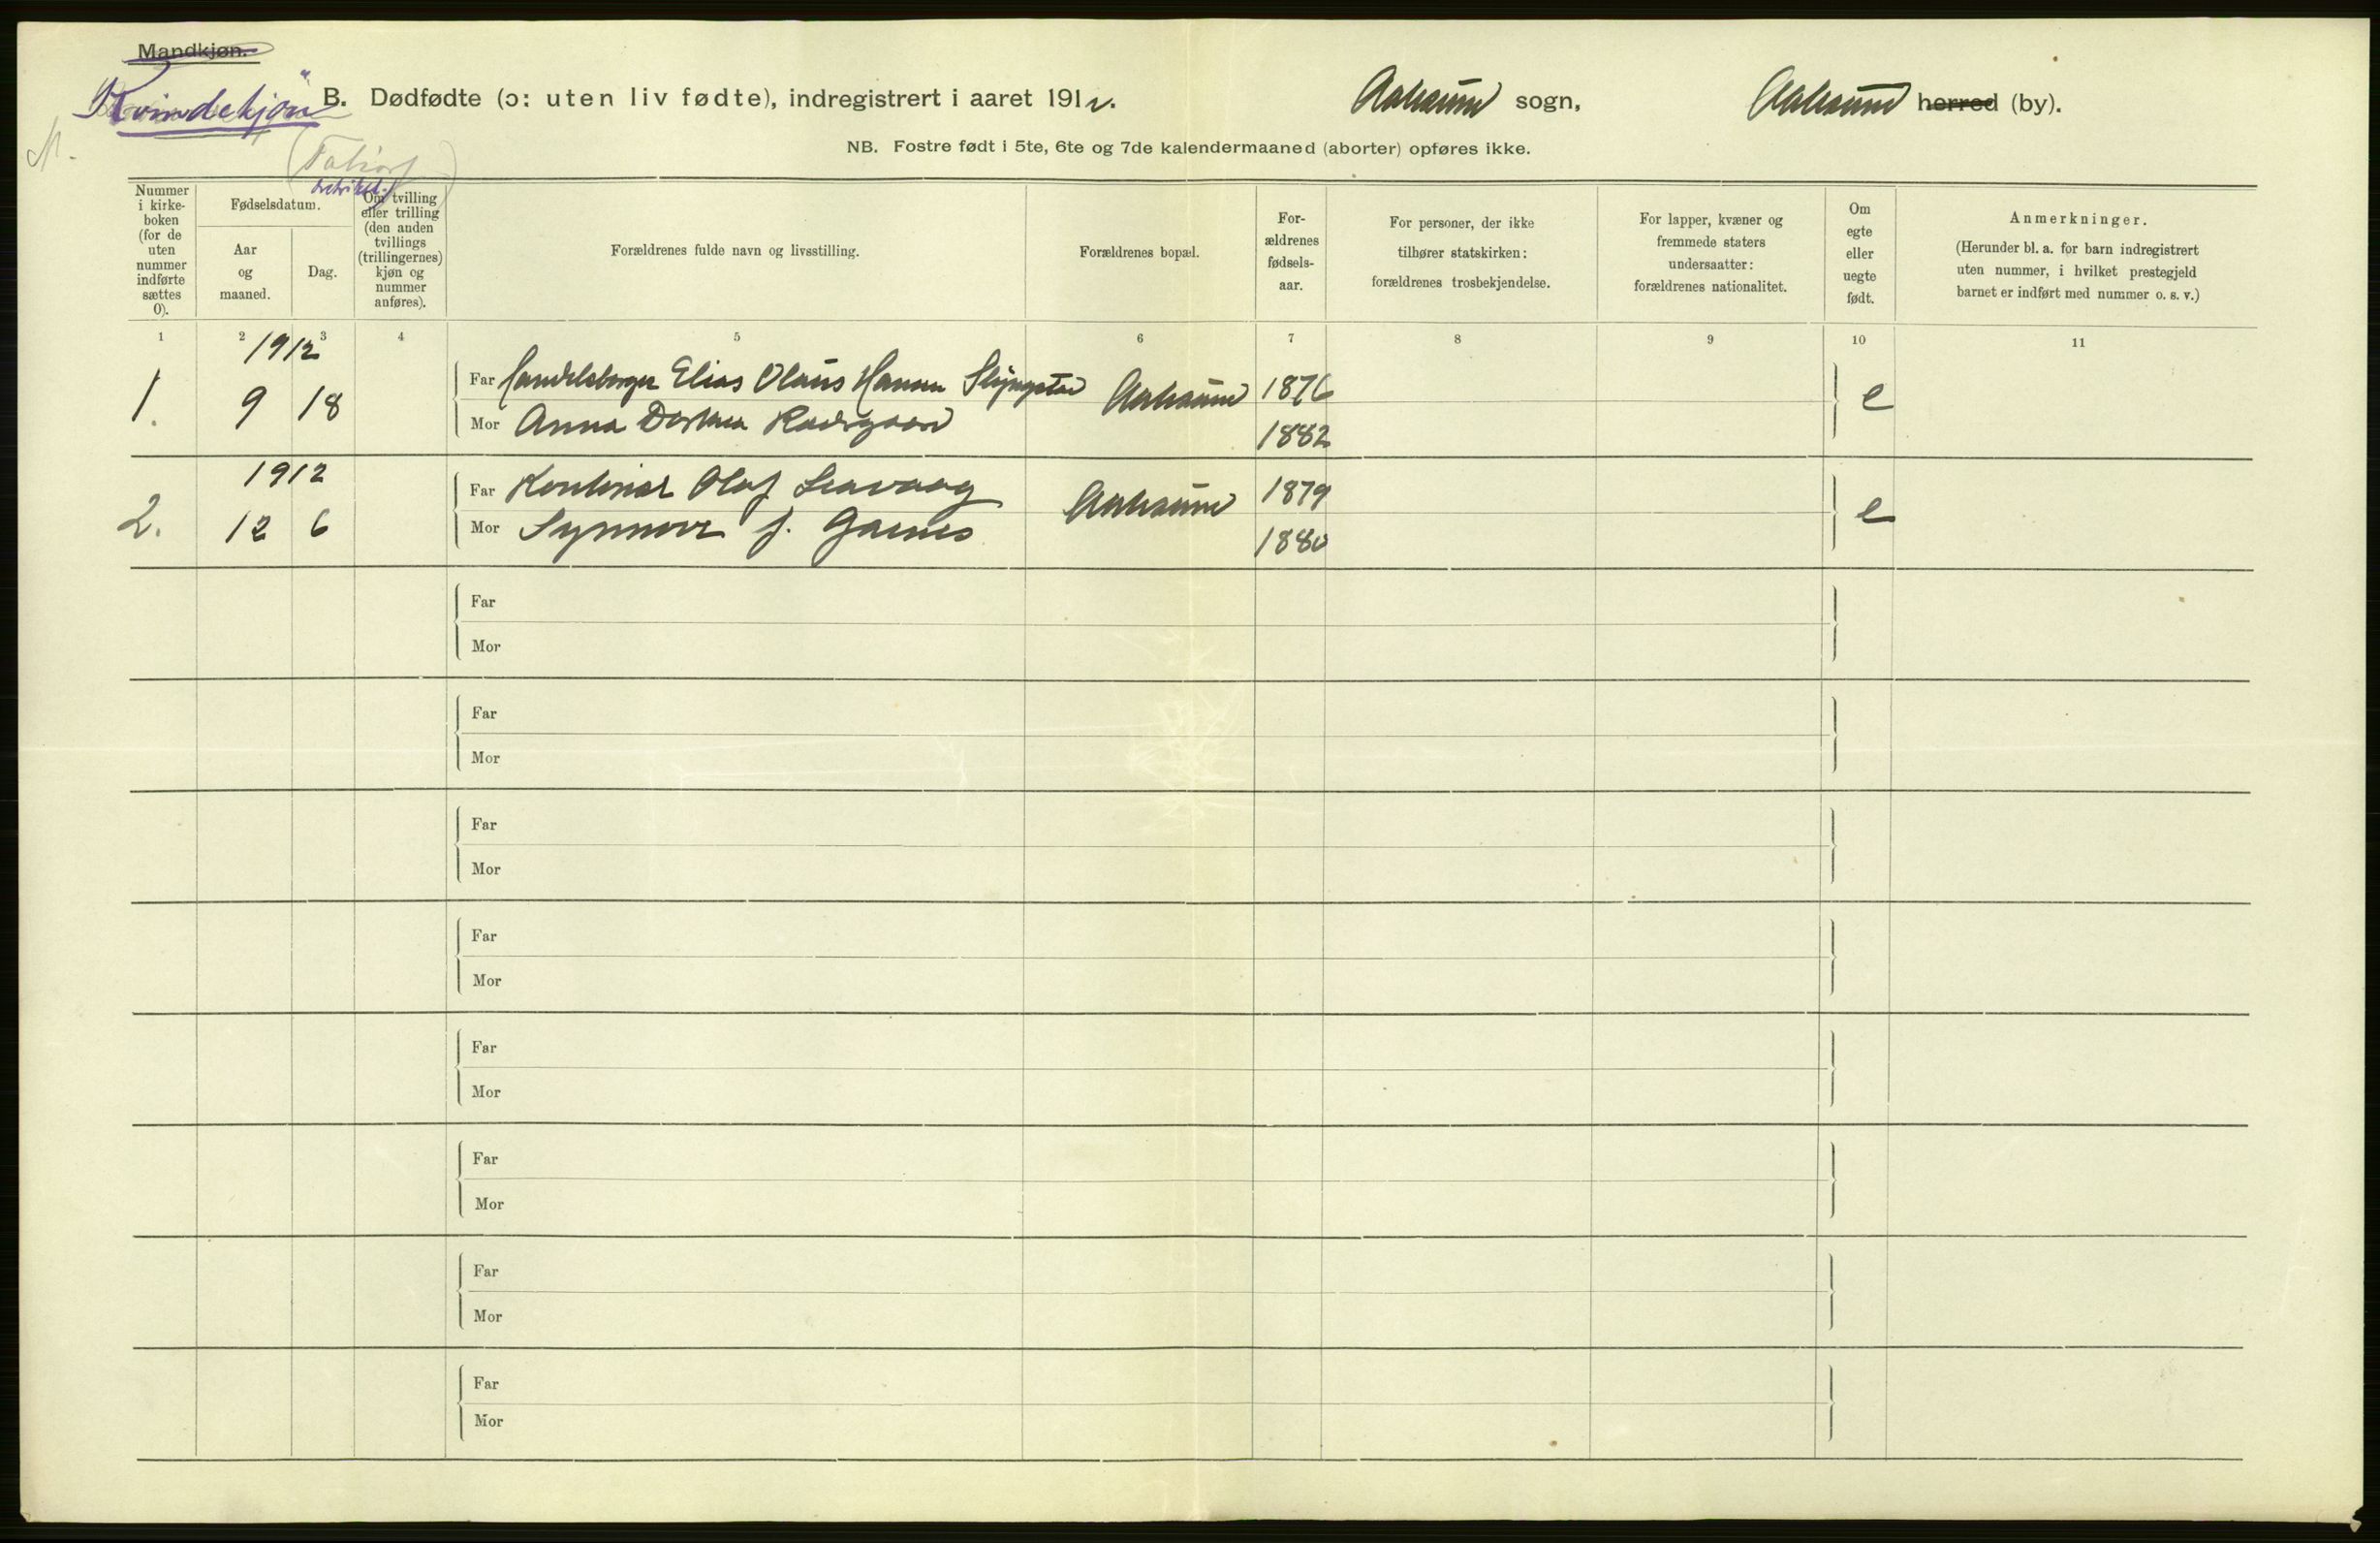 Mandkjøn.
Kvindekjøn
B. Dødfødte (ɔ: uten liv fødte), indregistrert i aaret 1912. Aalesund sogn, Aalesund herred (by).
NB. Fostre født i 5te, 6te og 7de kalendermaaned (aborter) opføres ikke.
Nummer i kirke-boken (for de uten nummer indførte sættes 0).
Fødselsdatum.
Aar og maaned.
Dag.
Om tvilling eller trilling (den anden tvillings (trillingernes) kjøn og nummer anføres).
Forældrenes fulde navn og livsstilling.
Forældrenes bopæl.
For-ældrenes fødsels-aar.
For personer, der ikke tilhører statskirken: forældrenes trosbekjendelse.
For lapper, kvæner og fremmede staters undersaatter: forældrenes nationalitet.
Om egte eller uegte født.
Anmerkninger.
(Herunder bl. a. for barn indregistrert uten nummer, i hvilket prestegjeld barnet er indført med nummer o. s. v.)
1 2 3 4 5 6 7 8 9 10 11
1912
1. 9 18 Far Handelsborger Elias Olaus Hansen Slyngstad Aalesund 1876 e
Mor Anna Dorthea Rødsgaard 1882
1912
2. 12 6 Far Kontorist Olaf Leavaag Aalesund 1879 e
Mor Synnøve J. Garnes 1880
Far
Mor
Far
Mor
Far
Mor
Far
Mor
Far
Mor
Far
Mor
Far
Mor
Far
Mor